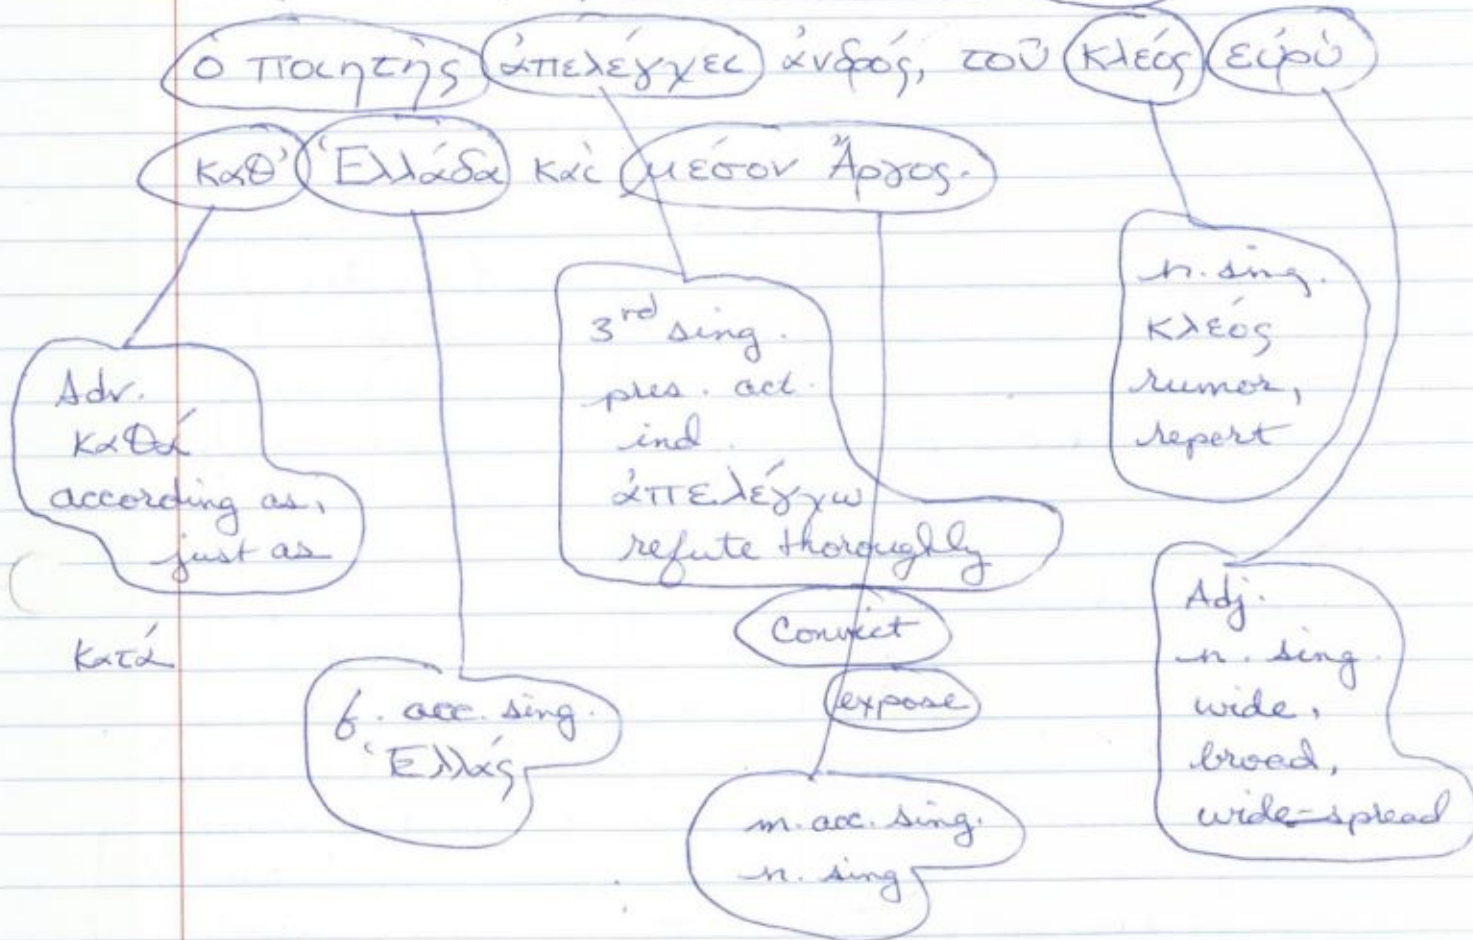 ὁ ποιητής ἀπελέγχει ἀνδρός, τοῦ κλεός εὐρὺ
καθ' Ἑλλάδα καὶ μέσον Ἄργος.
Adv.
καθά
according as,
just as
κατά
f. acc. sing.
Ἑλλάς
3rd sing.
pres. act.
ind.
ἀπελέγχω
refute thoroughly
Convict
expose
m. acc. sing.
n. sing
n. sing.
κλεός
rumor,
report
Adj.
n. sing.
wide,
broad,
wide-spread